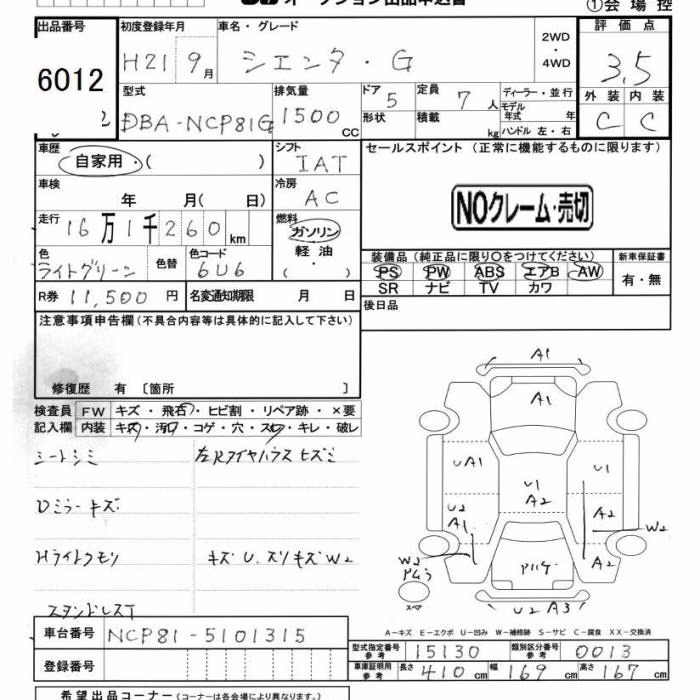 オークション出品申込書
①会場控
出品番号 初度登録年月 車名・グレード 2WD・4WD 評価点
6012 H21 9月 シエンタ・G 3.5
型式 排気量 ドア 定員 ディーラー・並行 外装 内装
DBA-NCP81G 1500cc 5 7人 モデル年式 年 C C
形状 積載 kg ハンドル 左・右
車歴 シフト セールスポイント(正常に機能するものに限ります)
自家用・( ) IAT
車検 年 月( 日) 冷房 AC
NOクレーム・売切
走行 16万1千260km 燃料 ガソリン 軽油 ( ・ )
色 ライトグリーン 色替 色コード 6U6
装備品(純正品に限り○をつけてください) 新車保証書
PS PW ABS エアB AW 有・無
SR ナビ TV カワ
R券 11,500円 名変通知期限 月 日
後日品
注意事項申告欄(不具合内容等は具体的に記入して下さい)
修復歴 有〔箇所 〕
検査員 FW キズ・飛石・ヒビ割・リペア跡・×要
記入欄 内装 キズ・汚れ・コゲ・穴・スレ・キレ・破レ
シートシミ
Dミラーキズ
Hライトクモリ キズU.スリキズW2
A1
A1
UA1 U1 U1
A2
U2 A1 A2 W2
W2 A2
スペア
U2 A3
A-キズ E-エクボ U-凹み W-補修跡 S-サビ C-腐食 XX-交換済
車台番号 NCP81-5101315
型式指定番号 参考 15130 類別区分番号 参考 0013
登録番号
車庫証明用 参考 長さ 410cm 幅 169cm 高さ 167cm
希望出品コーナー(コーナーは各会場により異なります。)